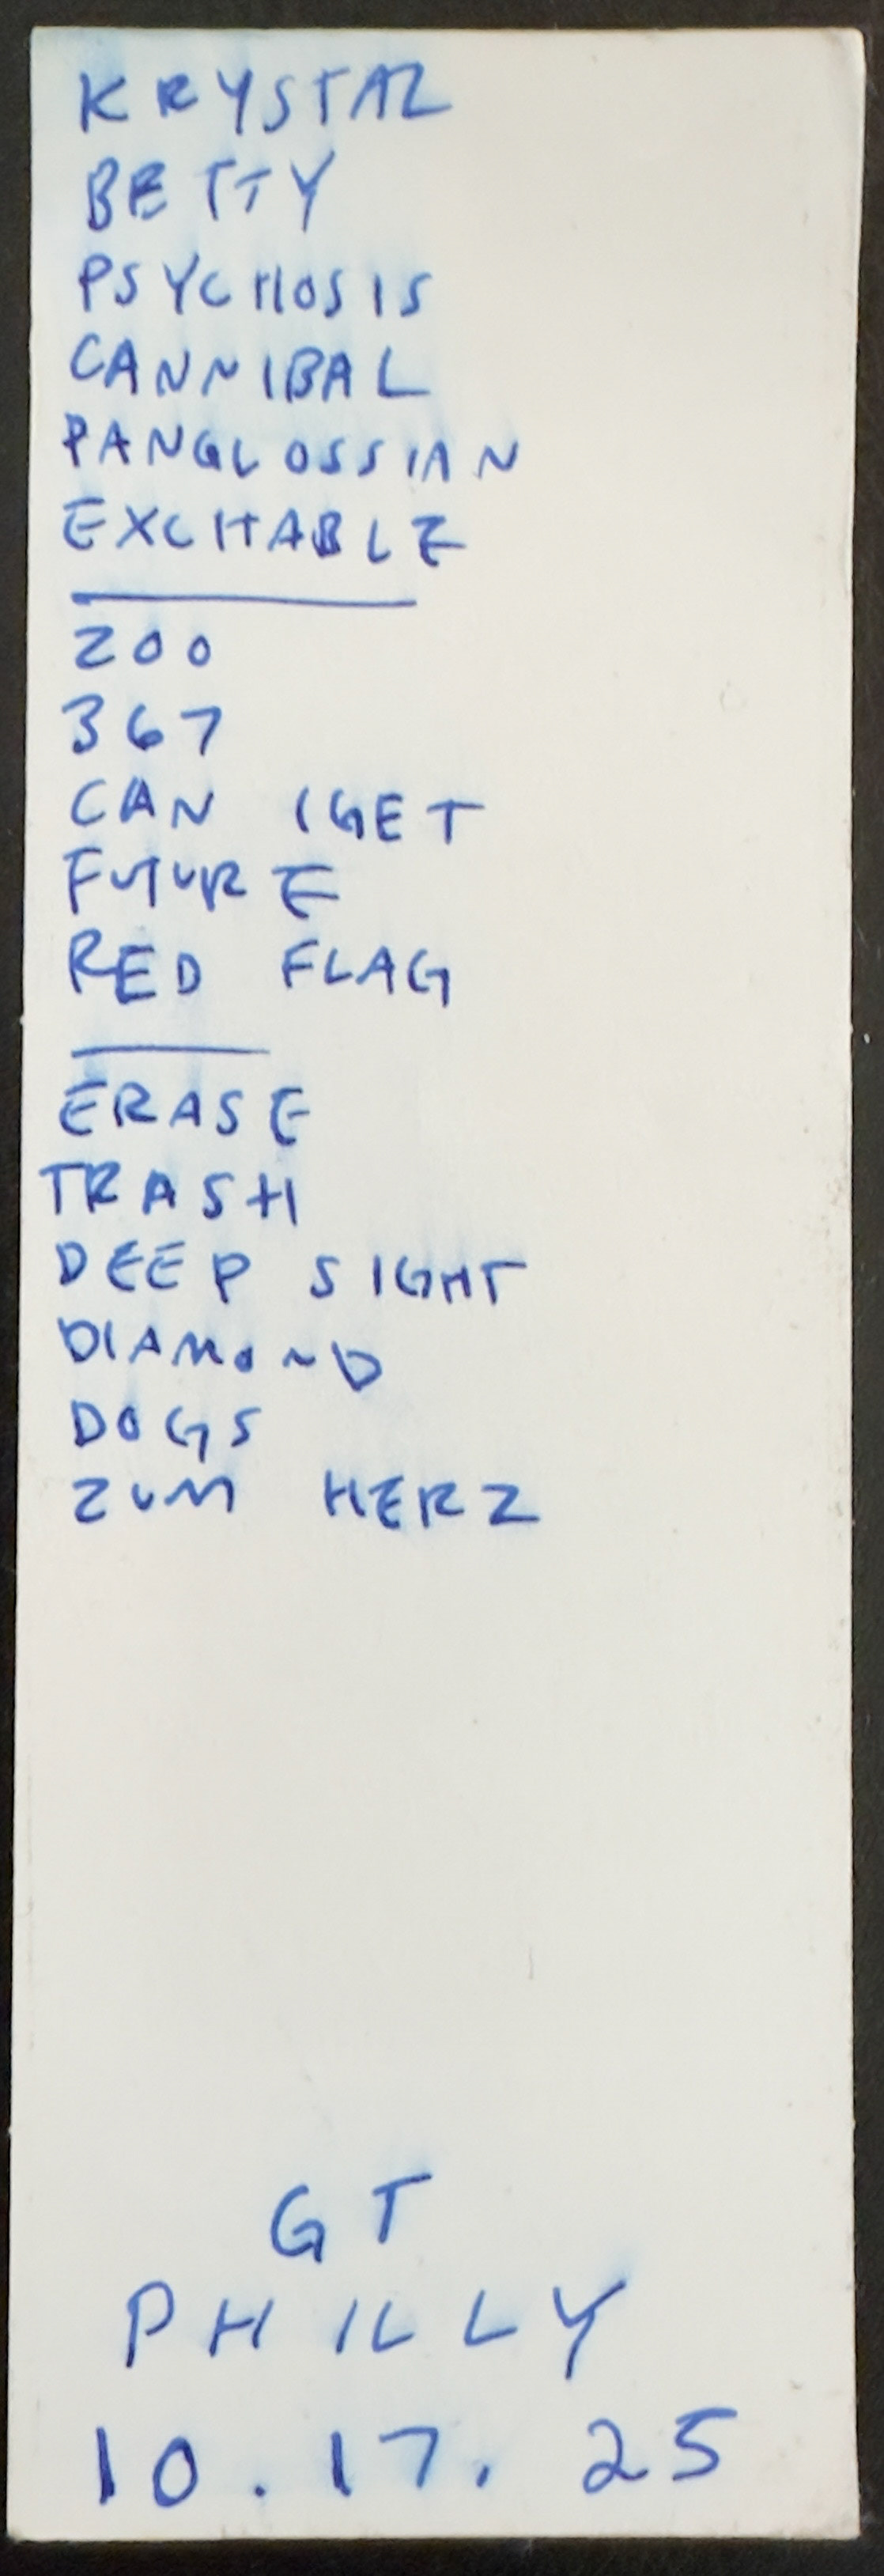 KRYSTAL
BETTY
PSYCHOSIS
CANNIBAL
PANGLOSSIAN
EXCITABLE
200
367
CAN I GET
FUTURE
RED FLAG
ERASE
TRASH
DEEP SIGHT
DIAMOND
DOGS
ZUM HERZ
GT
PHILLY
10.17.25